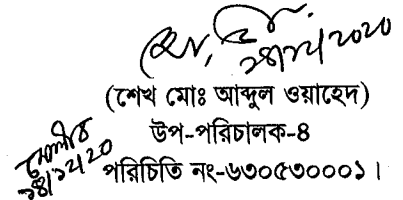 ২৪/১২/২০২০
(শেখ মোঃ আব্দুল ওয়াহেদ)
উপ-পরিচালক-৪
পরিচিতি নং-৬৩০৫৩০০০১।
২৪/১২/২০